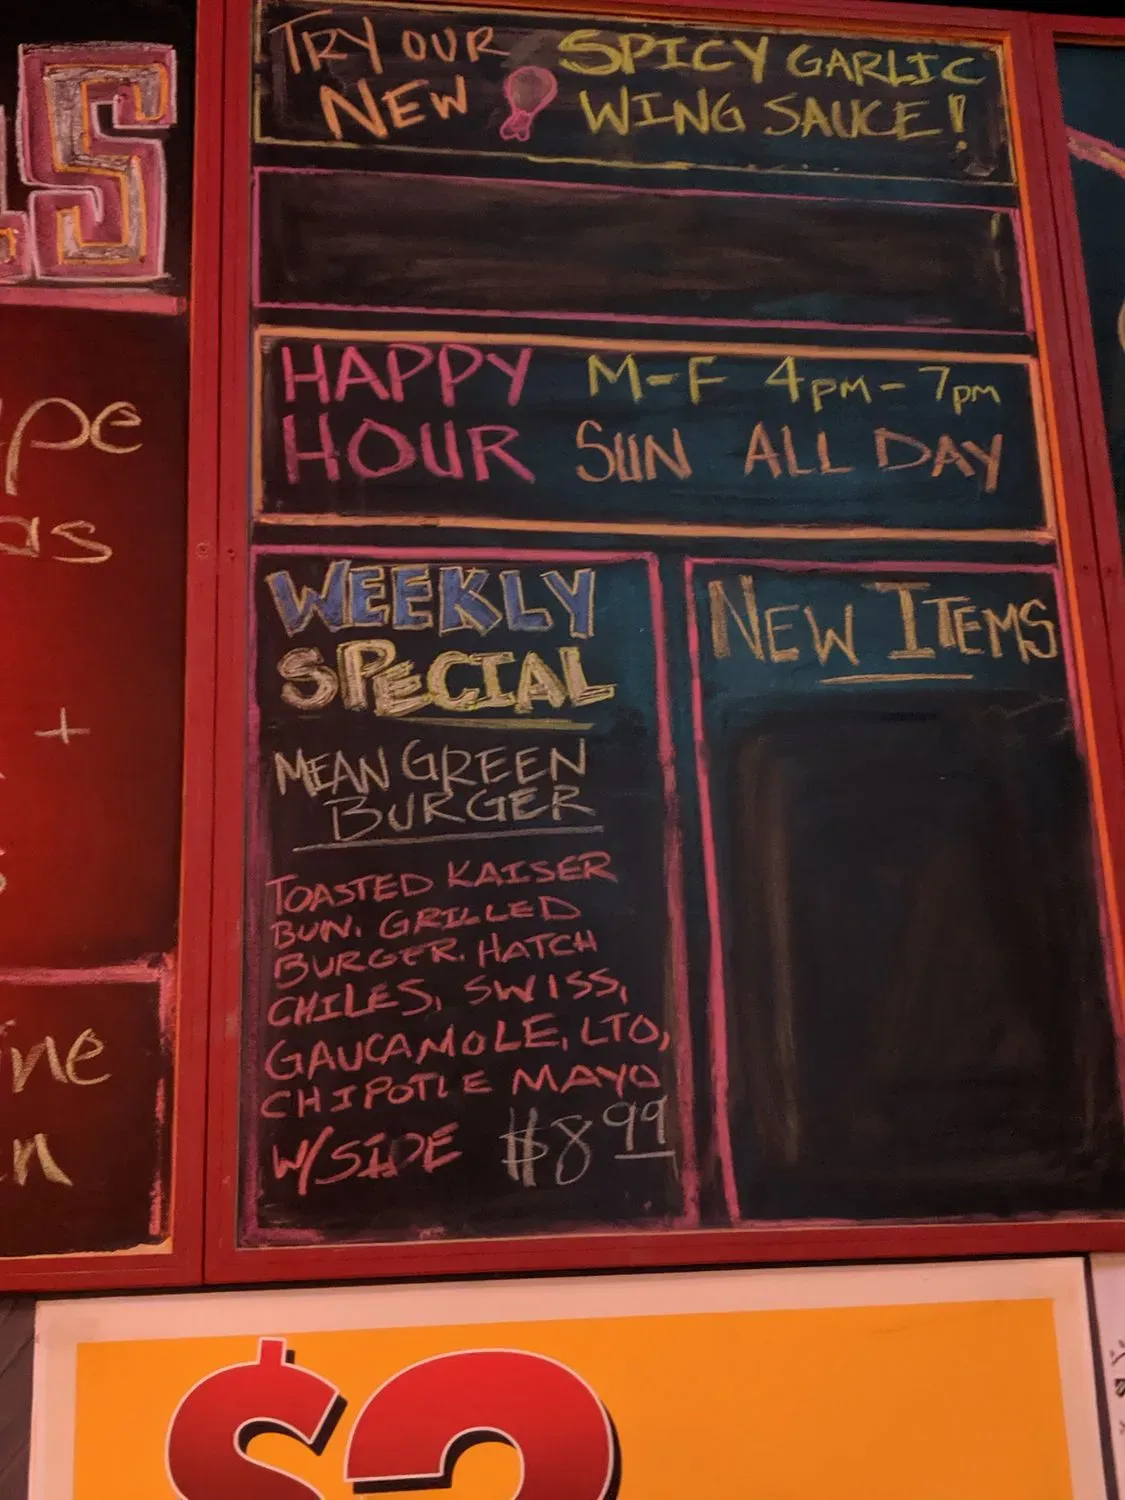 TRY OUR SPICY GARLIC
NEW WING SAUCE!
HAPPY M-F 4PM-7PM
HOUR SUN ALL DAY
WEEKLY
SPECIAL
MEAN GREEN
BURGER
TOASTED KAISER
BUN. GRILLED
BURGER. HATCH
CHILES, SWISS,
GAUCAMOLE, LTO,
CHIPOTLE MAYO
W/SIDE $8.99
NEW ITEMS
S
pe
as
+
ine
n
$